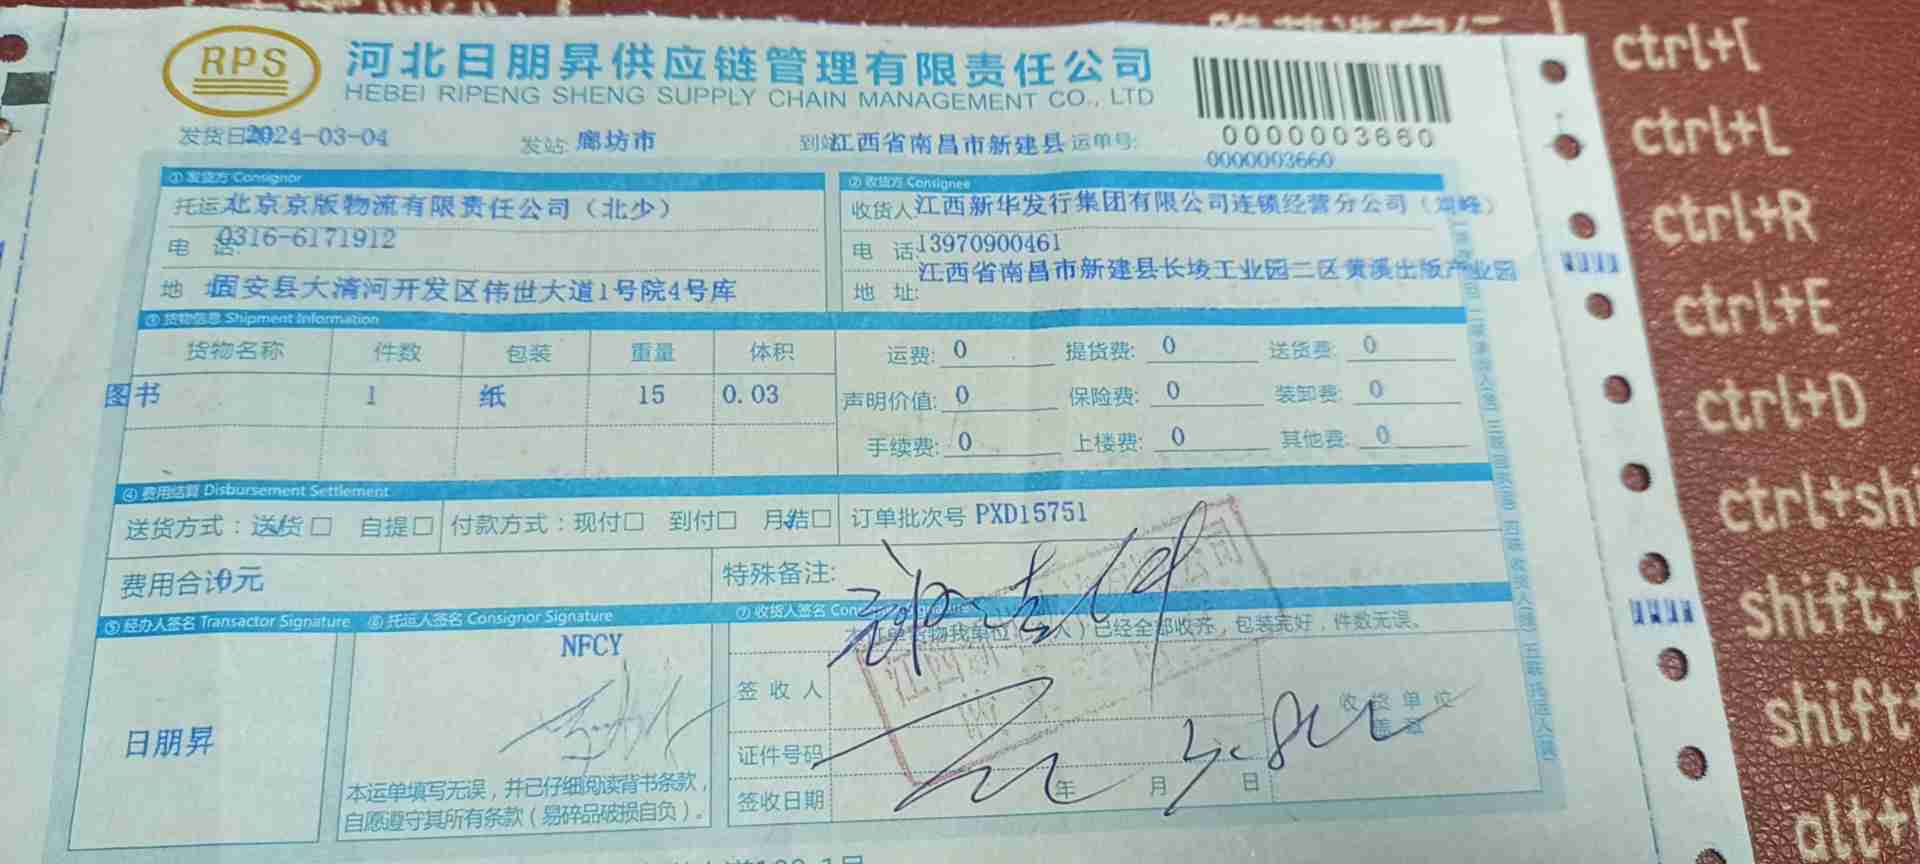 RPS
河北日朋昇供应链管理有限责任公司
HEBEI RIPENG SHENG SUPPLY CHAIN MANAGEMENT CO., LTD
0000003660
发货日 2024-03-04 发站: 廊坊市 到站 江西省南昌市新建县 运单号: 0000003660
① 发货方 Consignor ② 收货方 Consignee
托运 北京京版物流有限责任公司（北少） 收货人 江西新华发行集团有限公司连锁经营分公司
电 话: 0316-6171912 电 话: 13970900461
地 址 固安县大清河开发区伟世大道1号院4号库 地 址: 江西省南昌市新建县长堎工业园二区黄溪出版产业园
③ 货物信息 Shipment Information
货物名称 件数 包装 重量 体积 运费: 0 提货费: 0 送货费: 0
图书 1 纸 15 0.03 声明价值: 0 保险费: 0 装卸费: 0
手续费: 0 上楼费: 0 其他费: 0
④ 费用结算 Disbursement Settlement
送货方式：送货□ 自提□ 付款方式：现付□ 到付□ 月结□ 订单批次号 PXD15751
费用合计 0元 特殊备注:
⑤ 经办人签名 Transactor Signature ⑥ 托运人签名 Consignor Signature ⑦ 收货人签名
NFCY 已经全部收齐，包装完好，件数无误。
签 收 人 收 货 单 位
日朋昇 证件号码 盖 章
本运单填写无误，并已仔细阅读背书条款， 签收日期 年 月 日
自愿遵守其所有条款（易碎品破损自负）。
ctrl+[
ctrl+L
ctrl+R
ctrl+E
ctrl+D
ctrl+shi
shift+
shift+
alt+